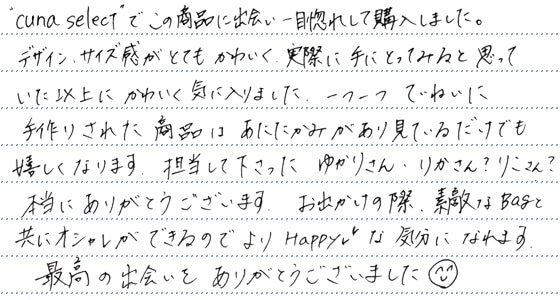 "cuna select"でこの商品に出会い一目惚れして購入しました。
デザイン、サイズ感がとてもかわいく、実際に手にとってみると思って
いた以上にかわいく気に入りました。一つ一つていねいに
手作りされた商品はあたたかみがあり見ているだけでも
嬉しくなります。担当して下さったゆかりさん・りかさん?りこさん?
本当にありがとうございます。お出かけの際、素敵なBagと
共にオシャレができるのでよりHappyな気分になれます。
最高の出会いをありがとうございました☺